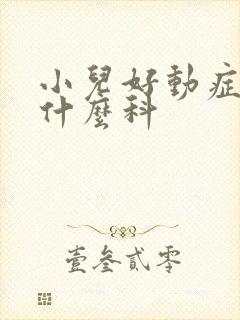 小兒好動症
什麼科
壹叄貳零